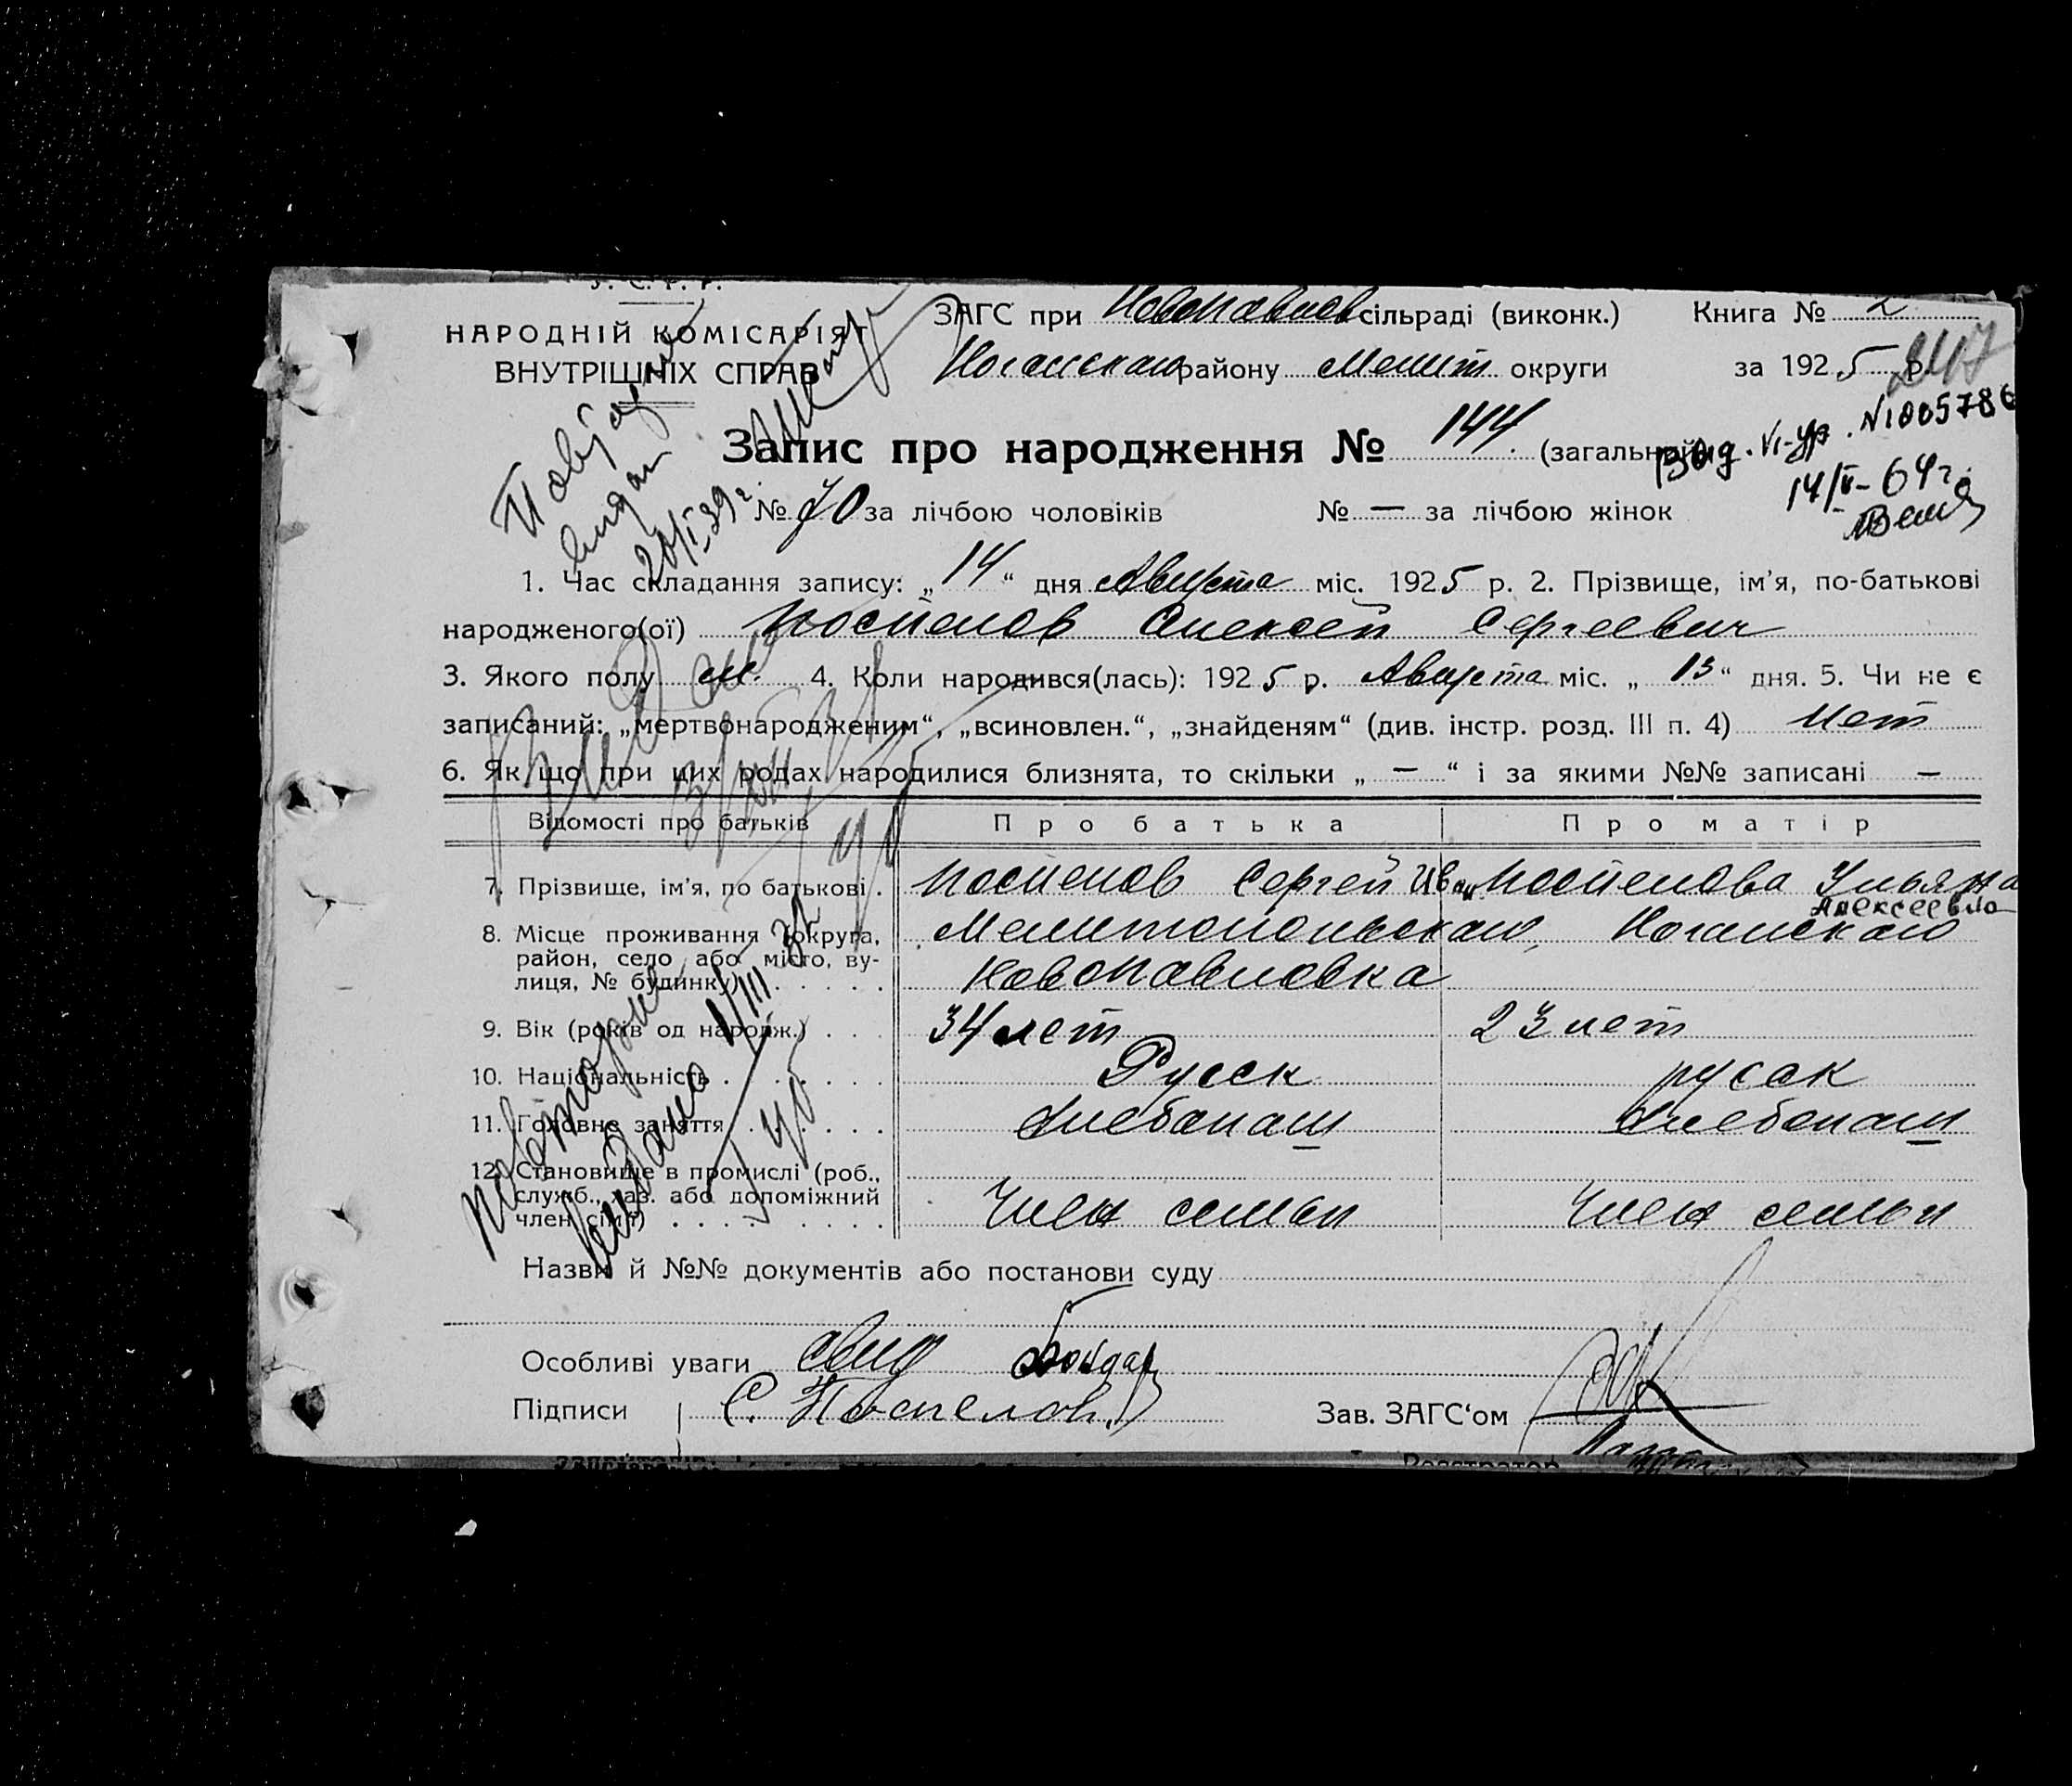 У. С. Р. Р.
НАРОДНІЙ КОМІСАРІЯТ
ВНУТРІШНІХ СПРАВ
ЗАГС при Новопавлов сільраді (виконк.) Книга № 2
Ногайскаго району Мелит округи за 1925 р.
Запис про народження № 144. (загальний)
№ 70 за лічбою чоловіків № — за лічбою жінок
N1005786
14/V-64г.
Повтор
видан
20/I 39г.
1. Час складання запису: „14“ дня Августа міс. 1925 р. 2. Прізвище, ім'я, по-батькові
народженого(ої) Поспелов Алексей Сергеевич
3. Якого полу м. 4. Коли народився(лась): 1925 р. Августа міс. „13“ дня. 5. Чи не є
записаний: „мертвонародженим“, „всиновлен.“, „знайденям“ (див. інстр. розд. III п. 4) Нет
6. Як що при цих родах народилися близнята, то скільки „ — “ і за якими №№ записані —
Відомості про батьків Про батька Про матір
7. Прізвище, ім'я, по батькові . Поспелов Сергей Иван Поспелова Ульяна
Алексеевна
8. Місце проживання (округа, Мелитопольскаго, Ногайскаго
район, село або місто, ву-
лиця, № будинку) . . . . . Новопавловка
9. Вік (років од народж.) . . . 34 лет 23 лет
10. Національність . . . . . . Русск русск
11. Головне заняття . . . . . Хлебопаш Хлебопаш
12. Становище в промислі (роб.,
служб., хаз. або допоміжний
член сім'ї) . . . . . . . . . Член семьи Член семьи
Повторно
Выдано
Назви й №№ документів або постанови суду
Особливі уваги свид Бондар
Підписи С. Поспелов Зав. ЗАГС'ом
Реєстратор